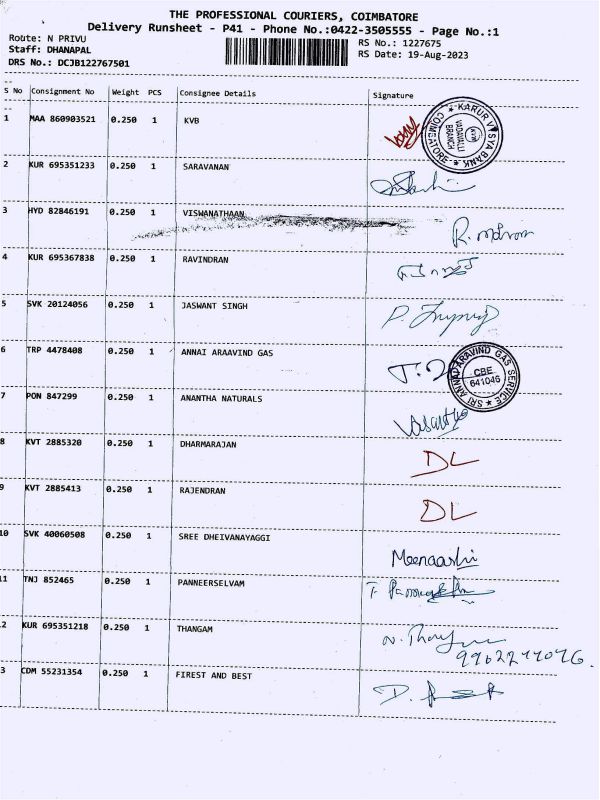 THE PROFESSIONAL COURIERS, COIMBATORE
Delivery Runsheet - P41 - Phone No.:0422-3505555 - Page No.:1
Route: N PRIVU
RS No.: 1227675
Staff: DHANAPAL
RS Date: 19-Aug-2023
DRS No.: DCJB122767501
S No Consignment No Weight PCS Consignee Details Signature
1 MAA 860903521 0.250 1 KVB
KARUR VYSYA BANK COIMBATORE VADAVALLI BRANCH
2 KUR 695351233 0.250 1 SARAVANAN
3 HYD 82846191 0.250 1 VISWANATHAAN
4 KUR 695367838 0.250 1 RAVINDRAN
5 SVK 20124056 0.250 1 JASWANT SINGH
6 TRP 4478408 0.250 1 ANNAI ARAAVIND GAS
SRI ANNAI ARAVIND GAS SERVICE CBE 641046
7 PON 847299 0.250 1 ANANTHA NATURALS
8 KVT 2885320 0.250 1 DHARMARAJAN DL
9 KVT 2885413 0.250 1 RAJENDRAN DL
10 SVK 40060508 0.250 1 SREE DHEIVANAYAGGI Meenaashi
11 TNJ 852465 0.250 1 PANNEERSELVAM
2 KUR 695351218 0.250 1 THANGAM
3 CDM 55231354 0.250 1 FIREST AND BEST